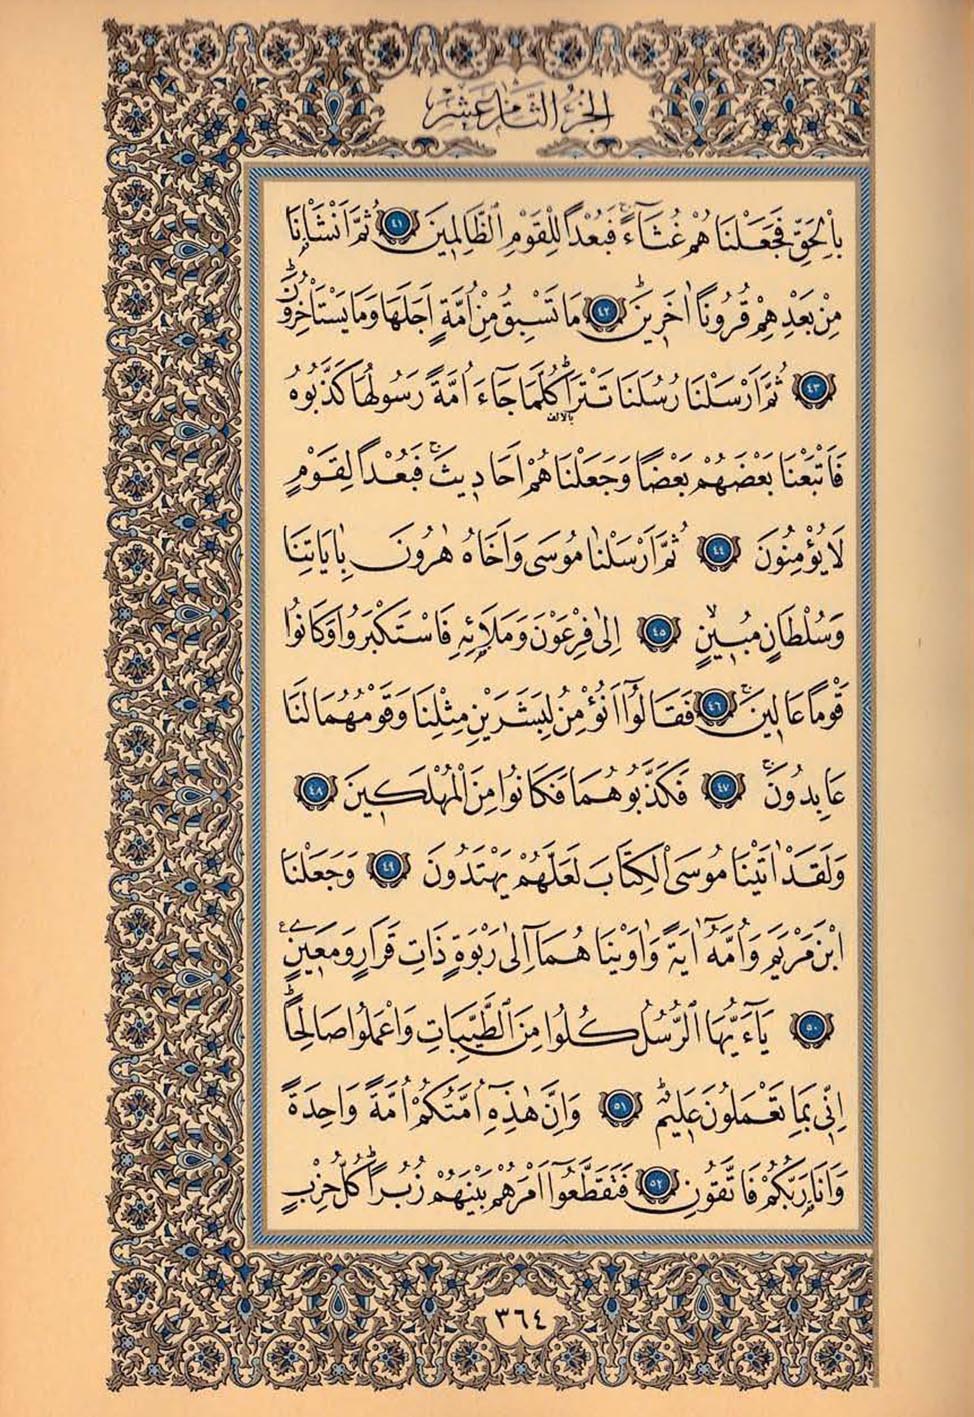 الجزء الثامن عشر
بِالْحَقِّ فَجَعَلْنَاهُمْ غُثَٓاءًۚ فَبُعْدًا لِلْقَوْمِ الظَّالِمِينَ ﴿٤١﴾ ثُمَّ اَنْشَاْنَا
مِنْ بَعْدِهِمْ قُرُونًا اٰخَرِينَۜ ﴿٤٢﴾ مَا تَسْبِقُ مِنْ اُمَّةٍ اَجَلَهَا وَمَا يَسْتَاْخِرُونَۜ
﴿٤٣﴾ ثُمَّ اَرْسَلْنَا رُسُلَنَا تَتْرَاۜ كُلَّمَا جَٓاءَ اُمَّةً رَسُولُهَا كَذَّبُوهُ
بالالف
فَاَتْبَعْنَا بَعْضَهُمْ بَعْضًا وَجَعَلْنَاهُمْ اَحَادِيثَۚ فَبُعْدًا لِقَوْمٍ
لَا يُؤْمِنُونَ ﴿٤٤﴾ ثُمَّ اَرْسَلْنَا مُوسٰى وَاَخَاهُ هٰرُونَ بِاٰيَاتِنَا
وَسُلْطَانٍ مُبِينٍۙ ﴿٤٥﴾ اِلٰى فِرْعَوْنَ وَمَلَا۬ئِهِ فَاسْتَكْبَرُوا وَكَانُوا
قَوْمًا عَالِينَۚ ﴿٤٦﴾ فَقَالُٓوا اَنُؤْمِنُ لِبَشَرَيْنِ مِثْلِنَا وَقَوْمُهُمَا لَنَا
عَابِدُونَۚ ﴿٤٧﴾ فَكَذَّبُوهُمَا فَكَانُوا مِنَ الْمُهْلَكِينَ ﴿٤٨﴾
وَلَقَدْ اٰتَيْنَا مُوسَى الْكِتَابَ لَعَلَّهُمْ يَهْتَدُونَ ﴿٤٩﴾ وَجَعَلْنَا
ابْنَ مَرْيَمَ وَاُمَّهُٓ اٰيَةً وَاٰوَيْنَاهُمَٓا اِلٰى رَبْوَةٍ ذَاتِ قَرَارٍ وَمَعِينٍ۟
﴿٥٠﴾ يَٓا اَيُّهَا الرُّسُلُ كُلُوا مِنَ الطَّيِّبَاتِ وَاعْمَلُوا صَالِحًاۜ
اِنِّي بِمَا تَعْمَلُونَ عَلِيمٌۜ ﴿٥١﴾ وَاِنَّ هٰذِهِٓ اُمَّتُكُمْ اُمَّةً وَاحِدَةً
وَاَنَا۬ رَبُّكُمْ فَاتَّقُونِ ﴿٥٢﴾ فَتَقَطَّعُٓوا اَمْرَهُمْ بَيْنَهُمْ زُبُرًاۜ كُلُّ حِزْبٍ
٣٦٤